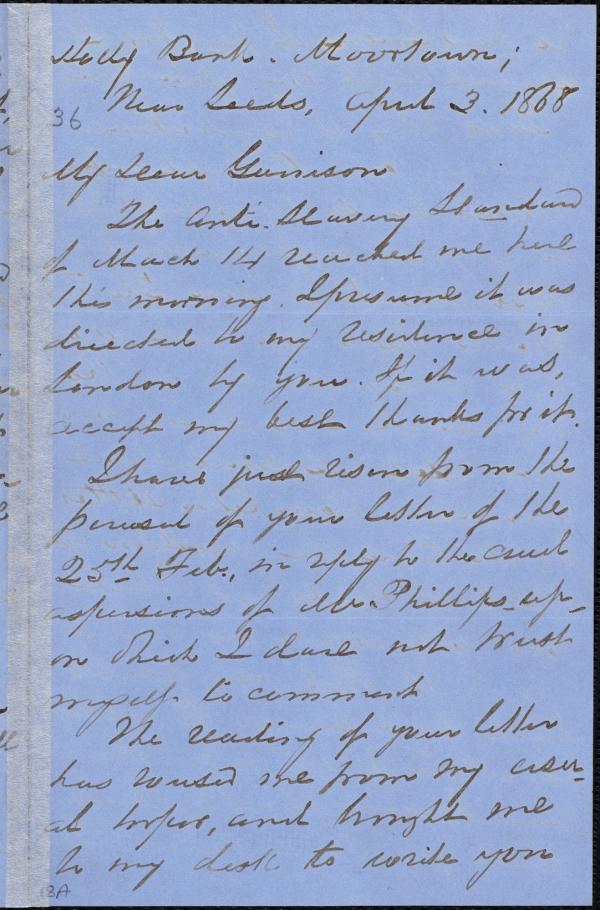 Holly Bank. Moortown;
Near Leeds, April 3. 1868
36
My Dear Garrison
The Anti-Slavery Standard
of March 14 reached me here
this morning. I presume it was
directed to my residence in
London by you. If it was,
accept my best thanks for it.
I have just risen from the
perusal of your letter of the
25th Feb., in reply to the cruel
aspersions of Mr. Phillips up-
on which I dare not trust
myself to comment
The reading of your letter
has roused me from my usu-
al torpor, and brought me
to my desk to write you
18A